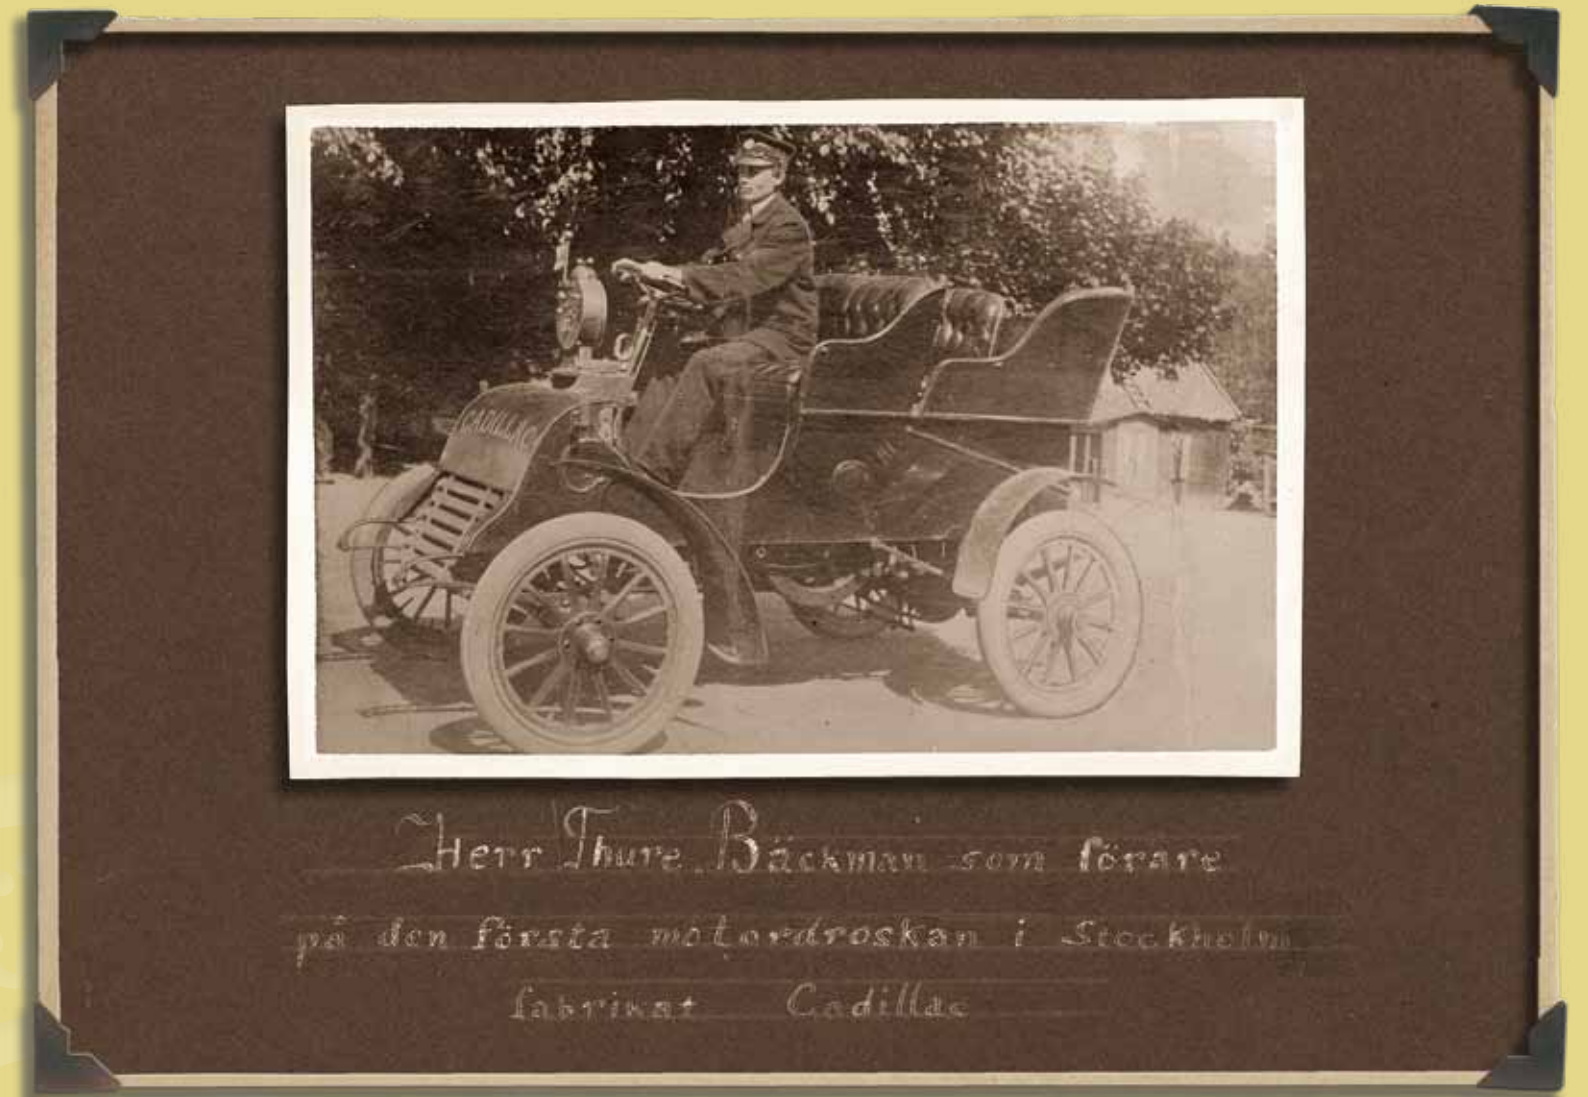 CADILLAC
Herr Thure Bäckman som förare
på den första motordroskan i Stockholm
fabrikat Cadillac